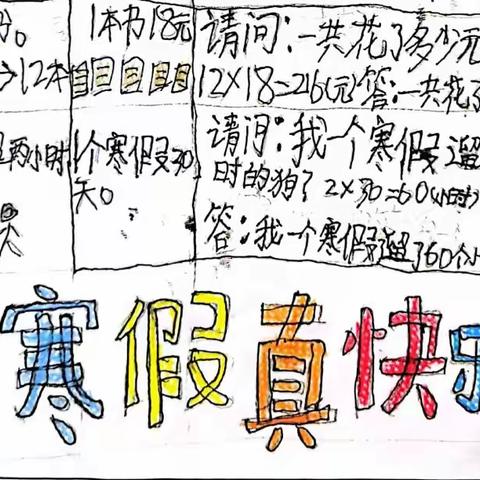 1本书18元
请问:一共花了多少元
12本
12×18=216(元)答:一共花了
两小时
1个寒假30
天。
请问:我一个寒假遛
时的狗?2×30=60(小时)
天
答:我一个寒假遛了60个小
寒假真快乐